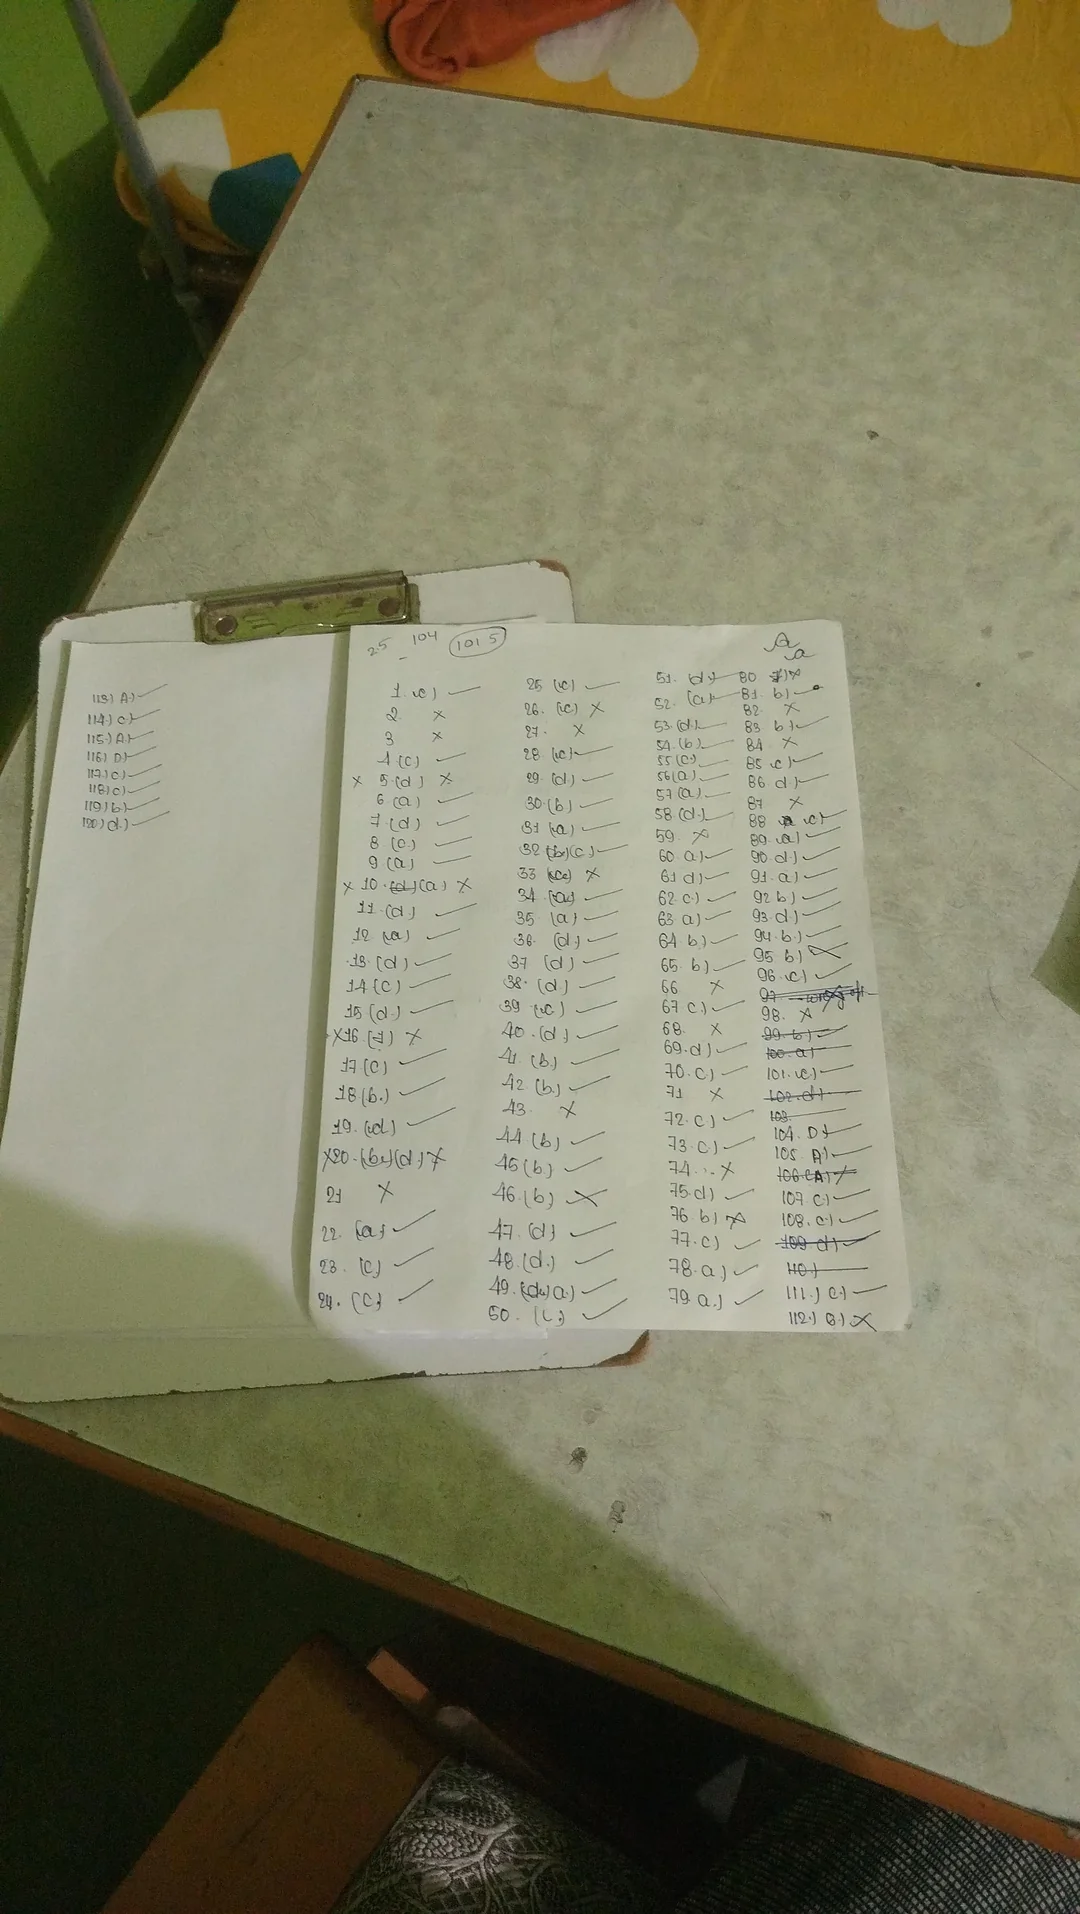 113) A)
114) C)
115) A)
116) D)
117) C)
118) C)
119) b)
120) d)
25 104 101 5
A
a
1. (c)
2. ×
3 ×
4 (c)
× 5 (d) ×
6. (a)
7. (d)
8 (c)
9 (a)
× 10. (a) ×
11. (d)
12 (a)
13. (d)
14 (c)
15 (d)
×16. ×
17 (c)
18 (b)
19. (d)
×20. (d) ×
21 ×
22. (a)
23. (c)
24. (c)
25 (c)
26. (c) ×
27. ×
28 (c)
29. (d)
30. (b)
31 (a)
32 (c)
33 ×
34
35 (a)
36. (d)
37 (d)
38. (d)
39 (c)
40. (d)
41. (b)
42 (b)
43. ×
44 (b)
45 (b)
46 (b) ×
47. (d)
48. (d)
49. a)
50.
51. d)
52. (a)
53. (d)
54. (b)
55 (c)
56 (a)
57 (a)
58 (d)
59. ×
60 a)
61 d)
62 c)
63 a)
64. b)
65. b)
66 ×
67 c)
68. ×
69. d)
70. c)
71 ×
72. c)
73. c)
74. ×
75. d)
76. b) ×
77. c)
78. a)
79 a)
80 ×
81. b)
82. ×
83 b)
84. ×
85 c)
86 d)
87 ×
88 c)
89. a)
90. d)
91. a)
92 b)
93. d)
94. b)
95 b) ×
96. c)
97
98. ×
99. b)
100. a)
101. c)
102. d)
103
104. D)
105 A)
106. (A) ×
107 c)
108. c)
109 d)
110.)
111.) C)
112.) B) ×